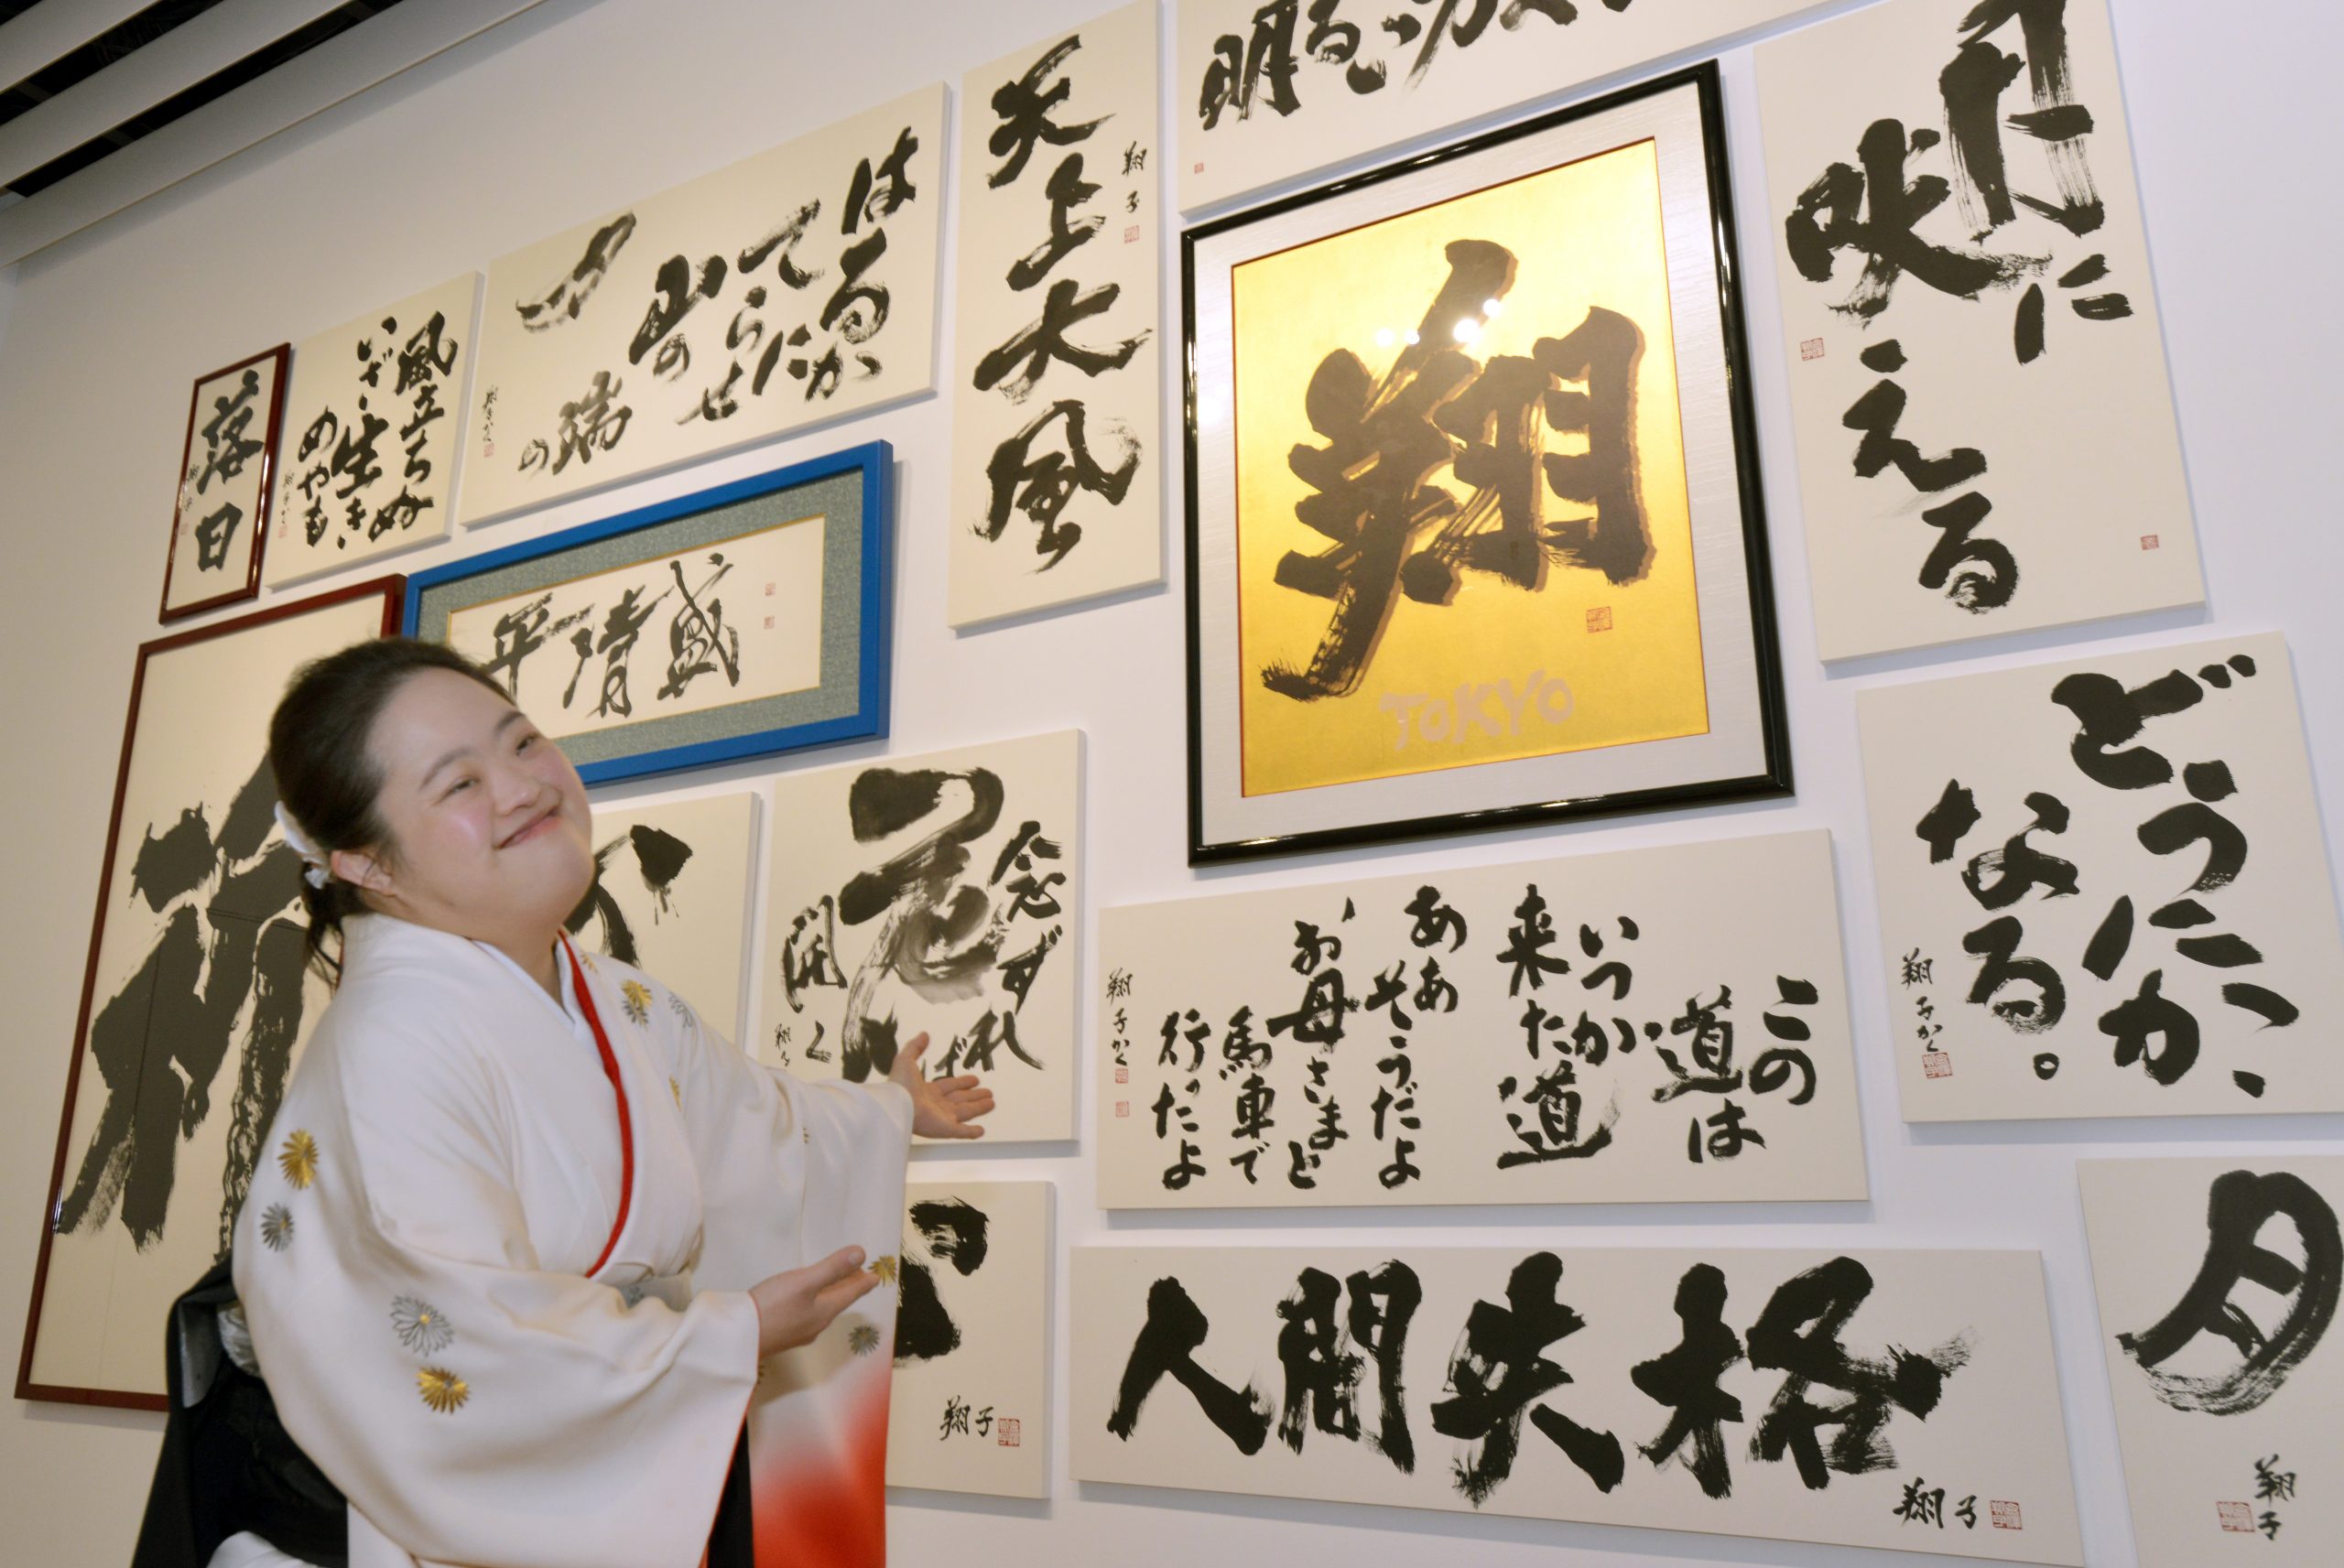 落日
翔子
風立ちぬ
いざ・生き
めやも
はるか
にか
てらせ
山の
端の
月
炎上大風
翔子
明るい方
月に
吠える
平清盛
翔
TOKYO
どうにか、
なる。
翔子かく
念ずれ
ば
花
開く
翔子
この
道は
いつか
来た道
ああ
そうだよ
お母さまと
馬車で
行ったよ
翔子かく
人間失格
翔子
翔子
月
翔子